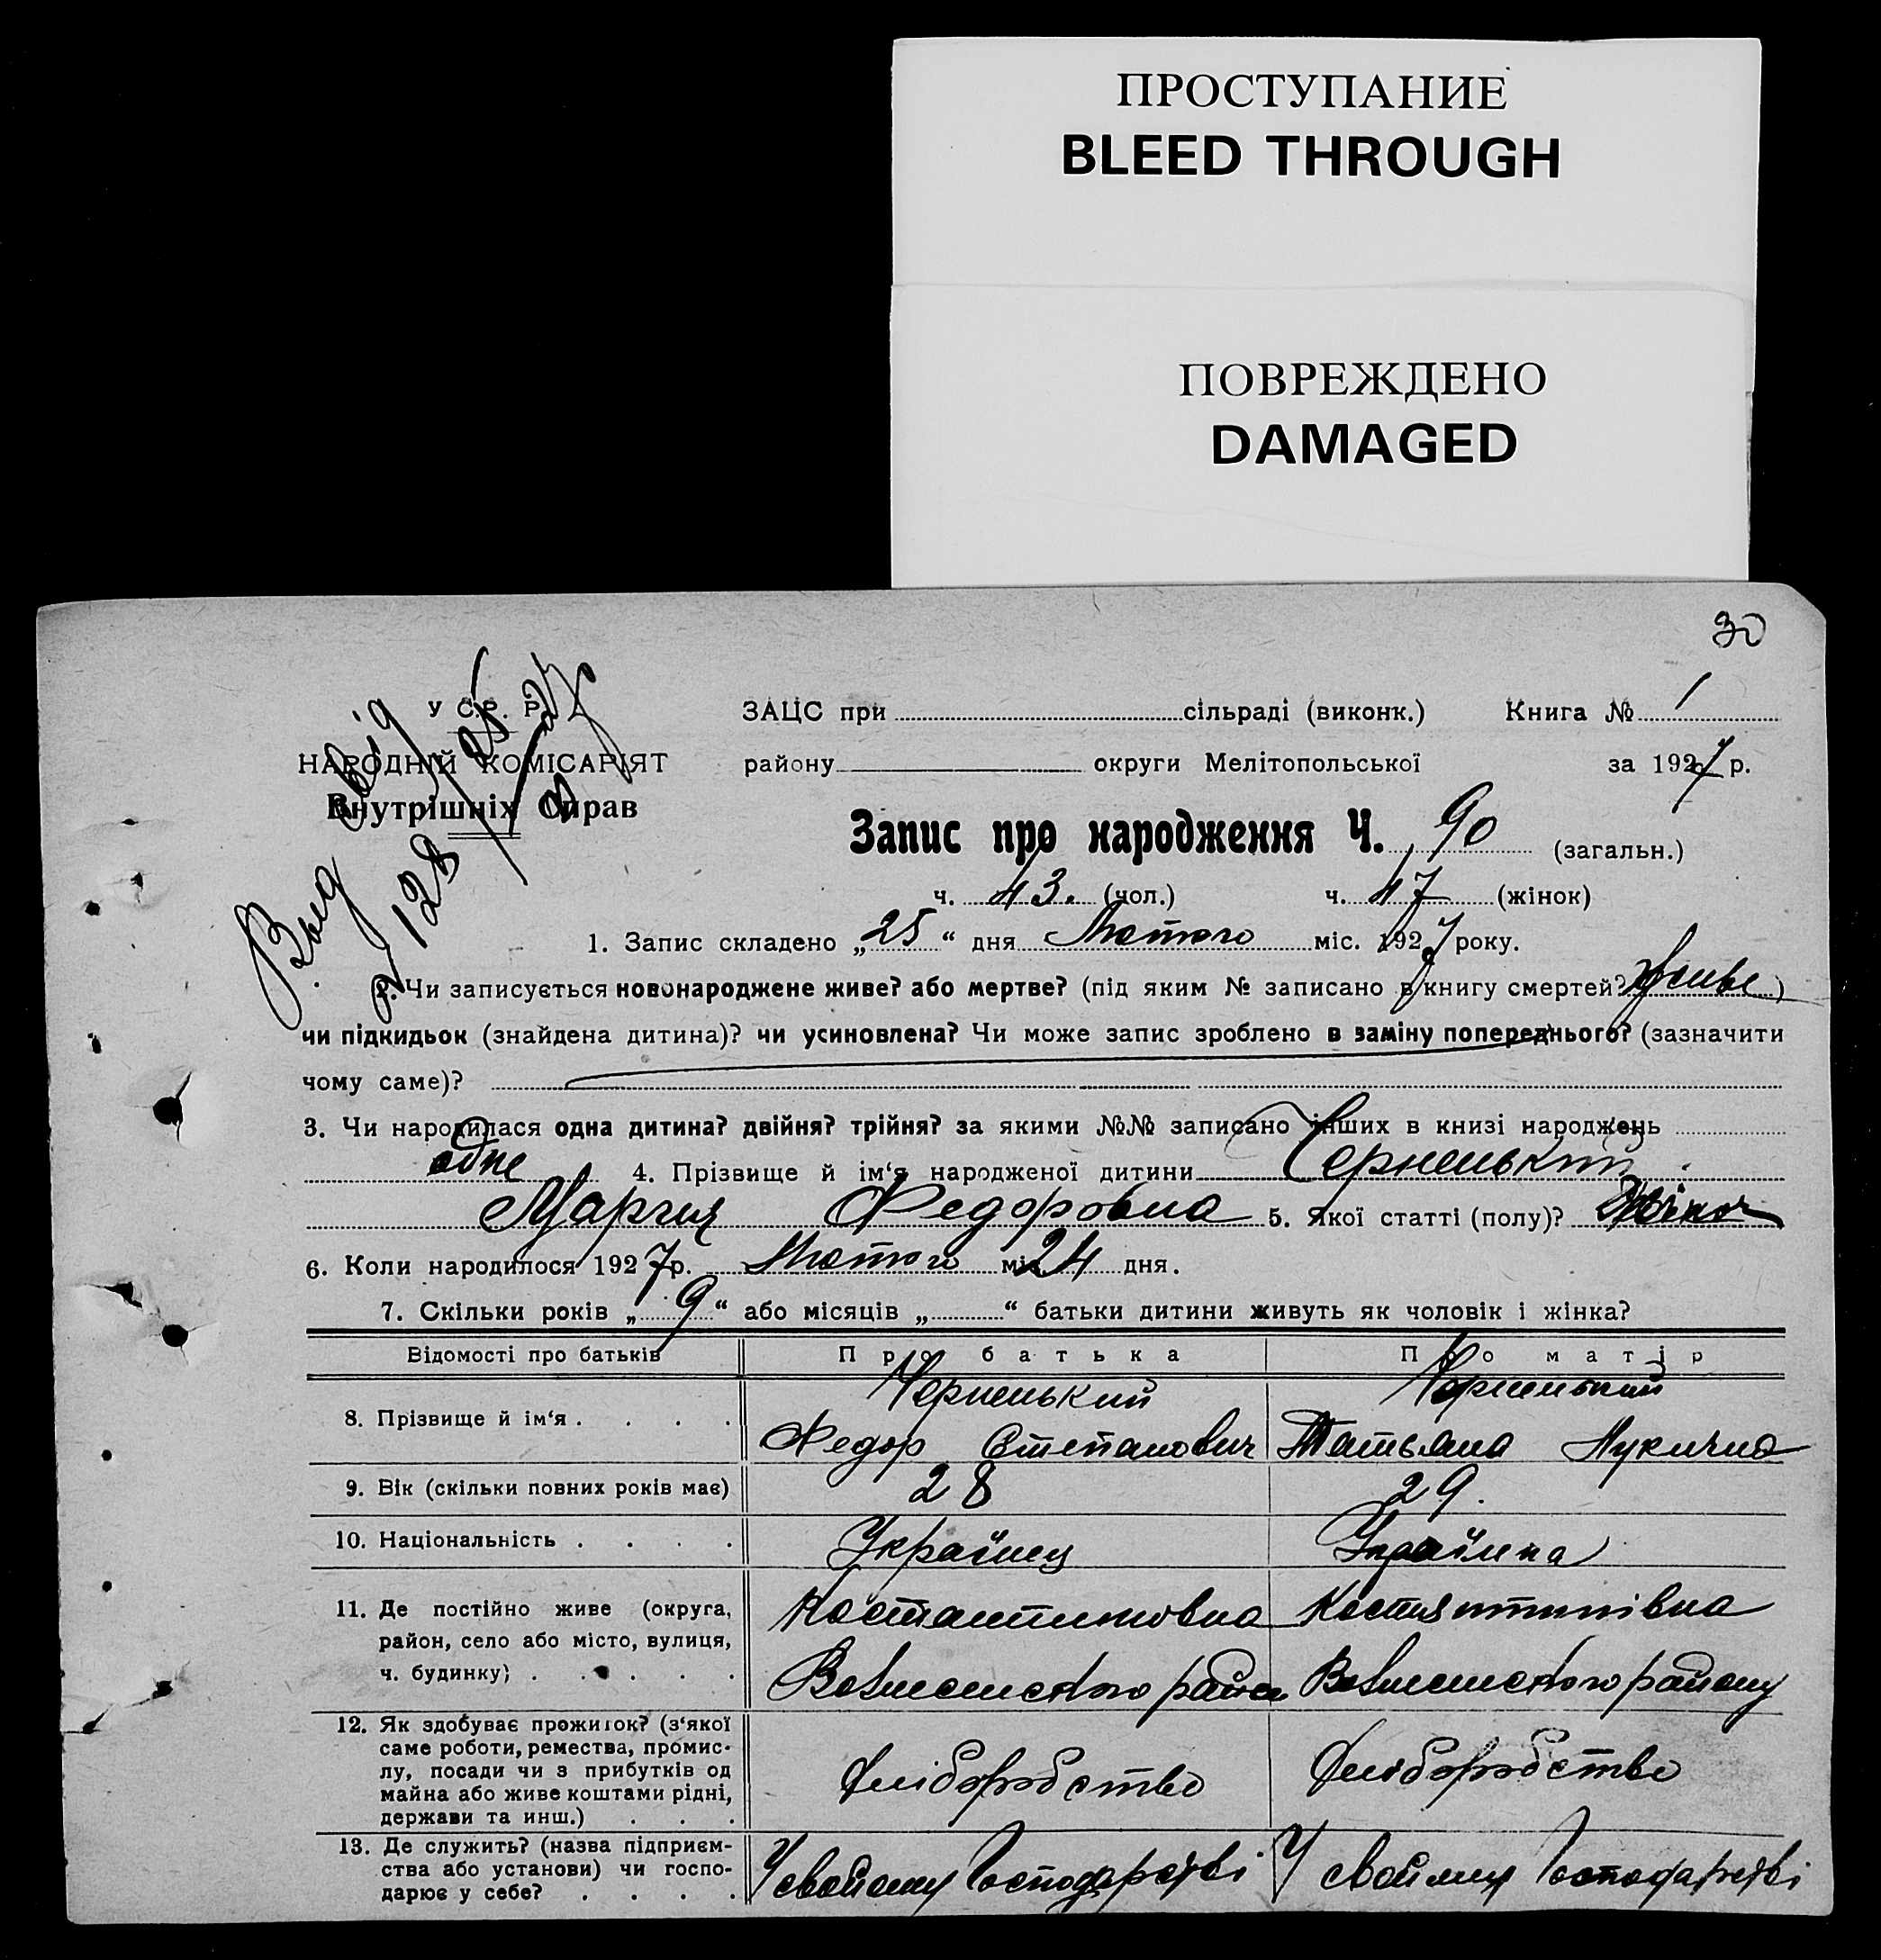 ПРОСТУПАНИЕ
BLEED THROUGH
ПОВРЕЖДЕНО
DAMAGED
30
У С.Р. Р.
НАРОДНІЙ КОМІСАРІЯТ
Внутрішніх Справ
Выд свід
128
ЗАЦС при сільраді (виконк.) Книга № 1
району округи Мелітопольської за 1927 р.
Запис про народження Ч. 90 (загальн.)
ч. 43. (чол.) ч. 47 (жінок)
1. Запис складено „25“ дня Лютого міс. 1927 року.
2. Чи записується новонароджене живе? або мертве? (під яким № записано в книгу смертей? Живе)
чи підкидьок (знайдена дитина)? чи усиновлена? Чи може запис зроблено в заміну попереднього? (зазначити
чому саме)?
3. Чи народилася одна дитина? двійня? трійня? за якими №№ записано інших в книзі народжень
одне 4. Прізвище й ім‘я народженої дитини Черненький
Мария Федоровна 5. Якої статті (полу)? Жіноч
6. Коли народилося 1927 р. Лютого міс. 24 дня.
7. Скільки років „9“ або місяців „ “ батьки дитини живуть як чоловік і жінка?
Відомості про батьків Про батька Про матір
8. Прізвище й ім‘я . . . . Черненький Федор Степанович Черненький Татьяна Лукична
9. Вік (скільки повних років має) 28 29.
10. Національність . . . . Українец Українка
11. Де постійно живе (округа, Костантиновка Костянтинівка
район, село або місто, вулиця,
ч. будинку) . . . . . Вознесенского район Вознесенского району
12. Як здобуває прожиток? (з‘якої
саме роботи, ремества, промис-
лу, посади чи з прибутків од Хліборобство Хліборобство
майна або живе коштами рідні,
держави та инш.) . . .
13. Де служить? (назва підприєм-
ства або установи) чи госпо- У свойому господарстві У свойому господарстві
дарює у себе? . . . .